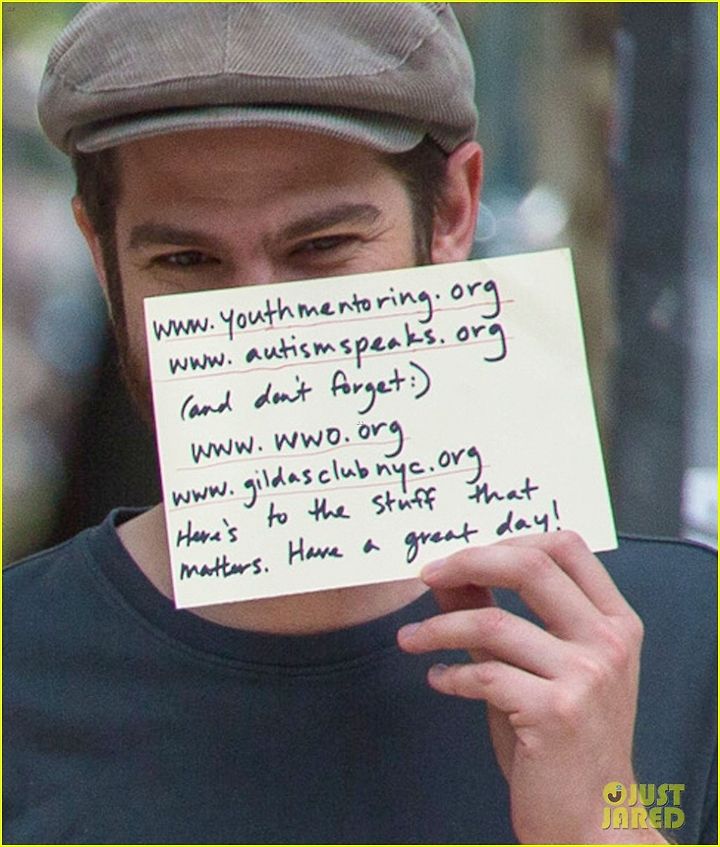 www.youthmentoring.org
www.autismspeaks.org
(and don't forget:)
www.wwo.org
www.gildasclubnyc.org
Here's to the stuff that
matters. Have a great day!
JUST
JARED